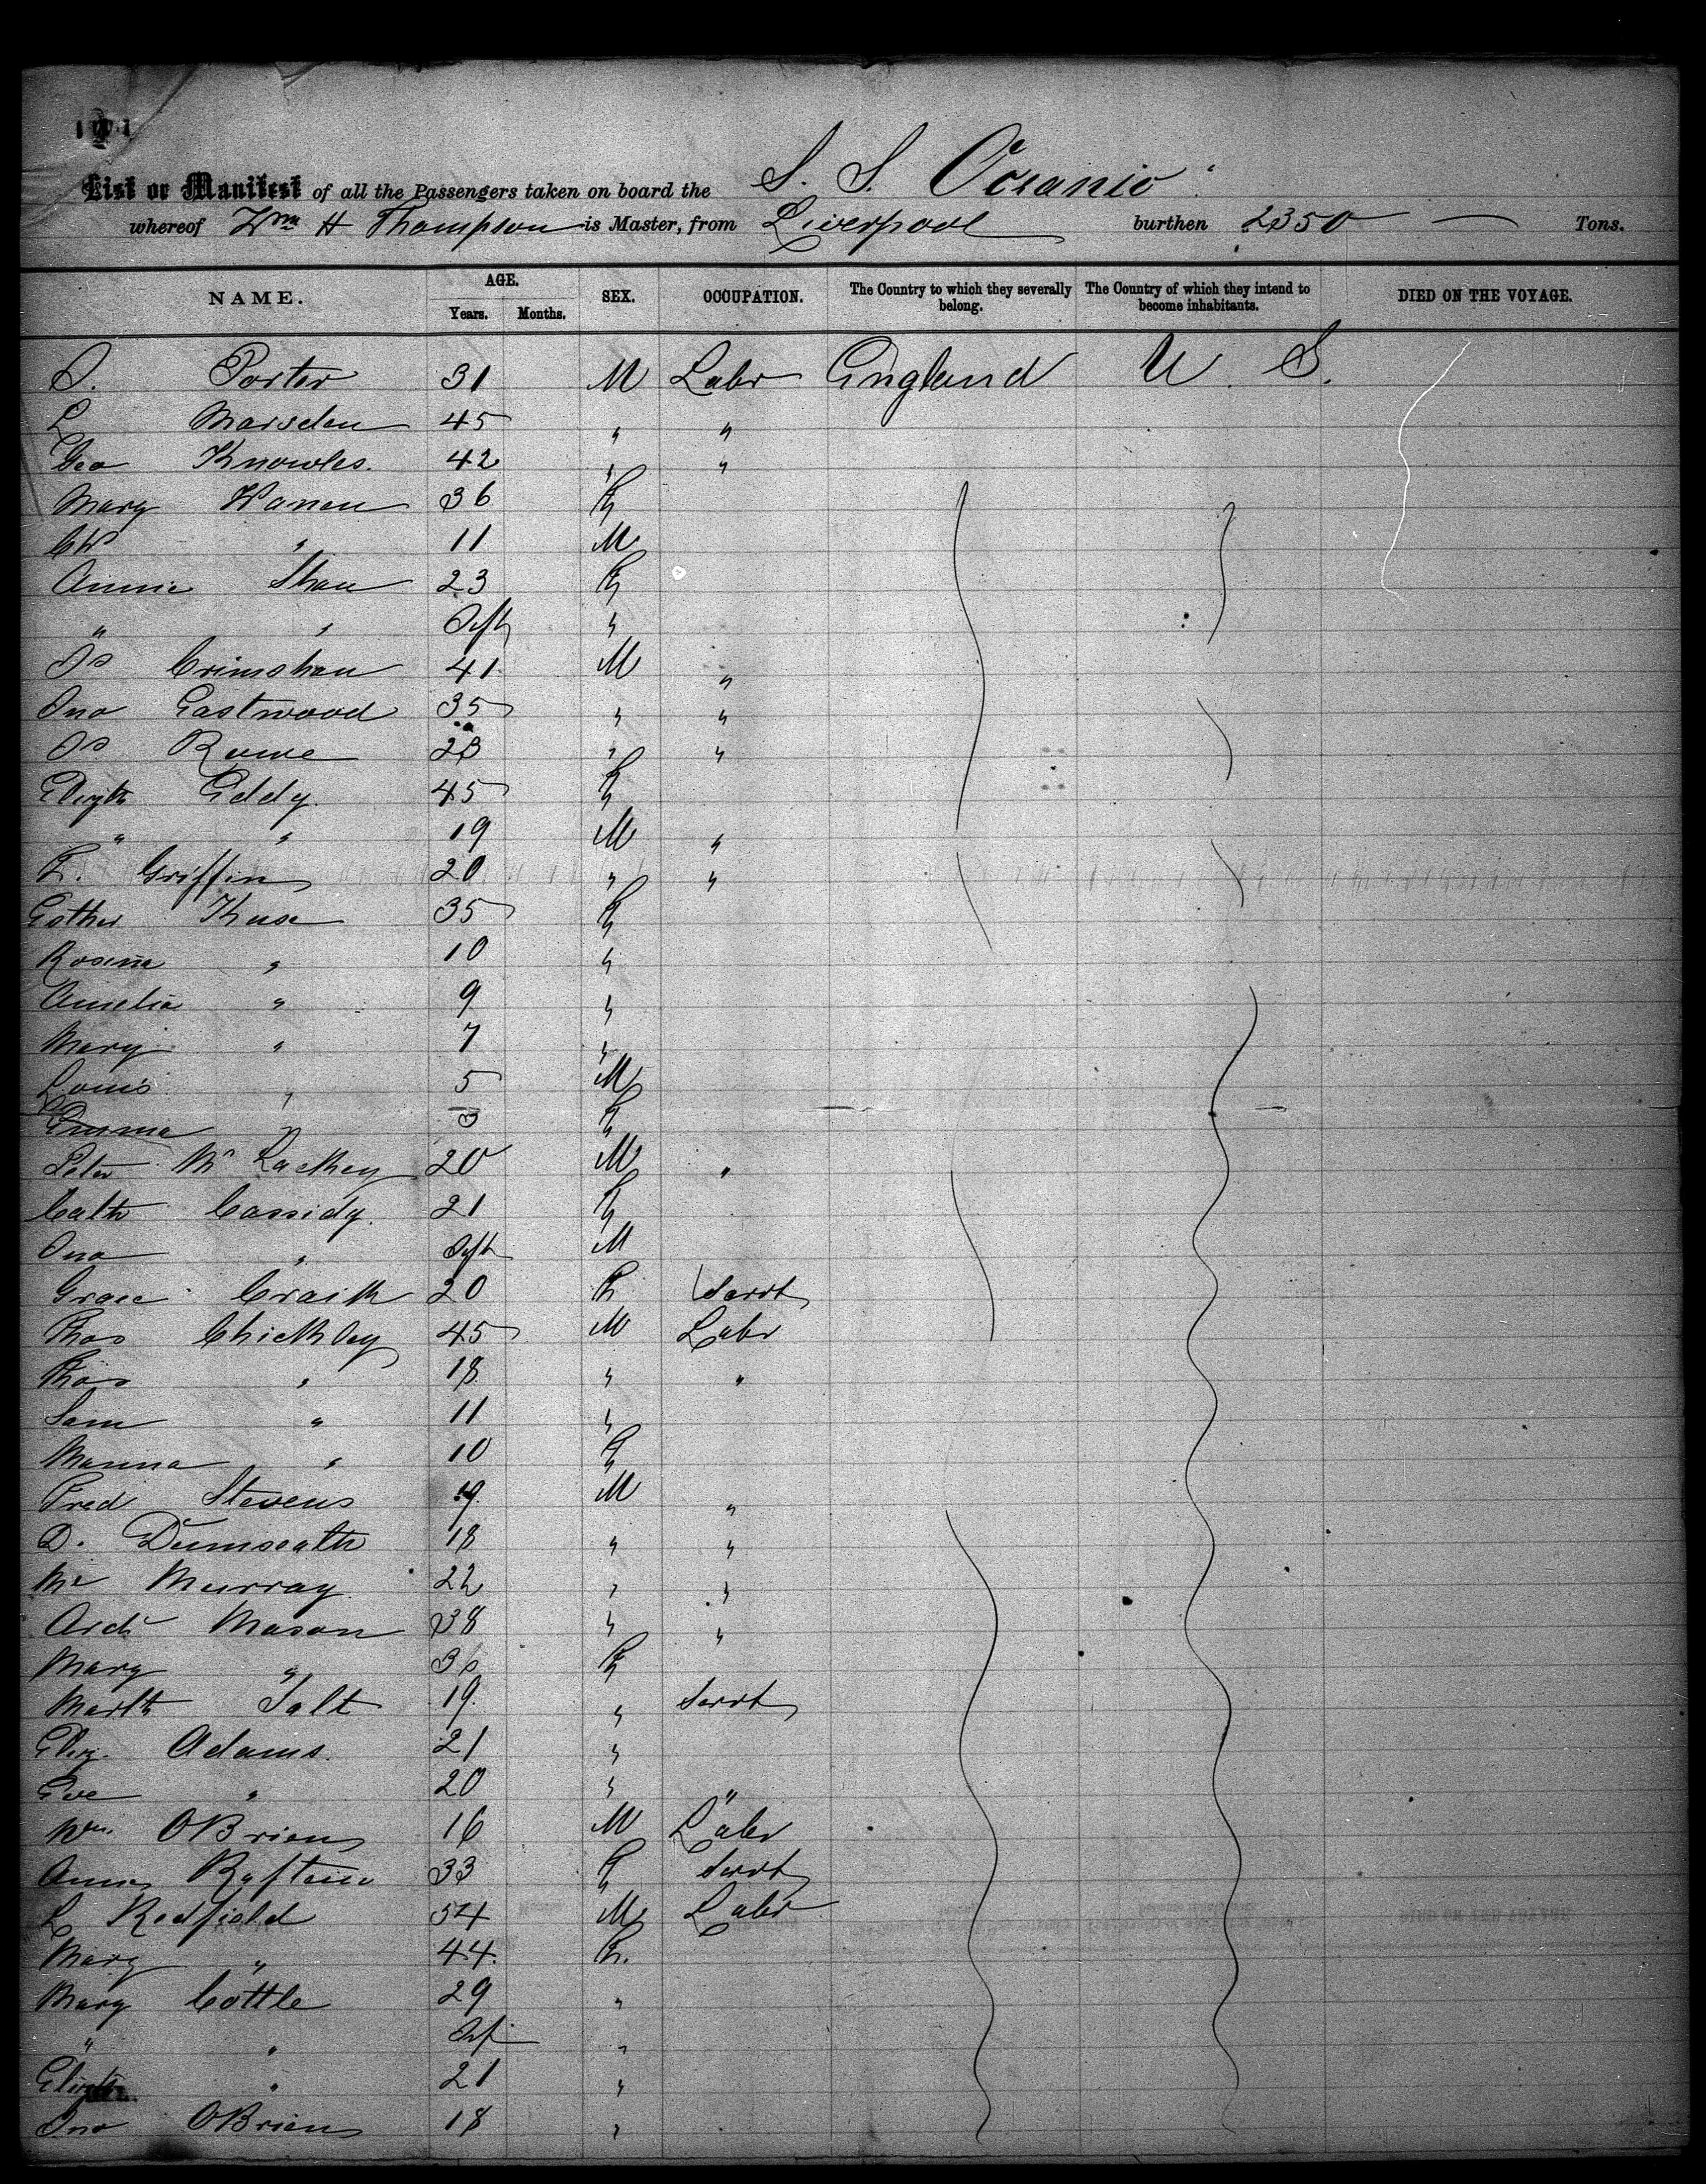 List or Manifest of all the Passengers taken on board the S. S. Oceanic
whereof Wm H Thompson is Master, from Liverpool burthen 2350 — Tons.
NAME. AGE. Years. Months. SEX. OCCUPATION. The Country to which they severally belong. The Country of which they intend to become inhabitants. DIED ON THE VOYAGE.
Porter 31 M Labr England U. S.
L Marsden 45 " "
Geo Knowles. 42 " "
Mary 36 F
" 11 M
Annie Shaw 23 F
" " Inft "
Js Crimshaw 41 M "
Jno Eastwood 35 " "
Js Rowe 23 " "
Elizth Eddy. 45 F
" " 19 M "
F. Griffin 20 " "
Esther 35 F
Rosina " 10 "
Amelia " 9 "
Mary " 7 "
Louis " 5 M
Emma " 3 F
Peter Mc Lackey 20 M "
Cath Cassidy. 21 F
Jno " Inft M
Grace Craik 20 F Servt
Thos Chickley 45 M Labr
Thos " 18 " "
Sam " 11 "
" 10 F
Fred Stevens 19 M "
D. Dumseath 18 " "
Murray 22 " "
Archd Mason 38 " "
Mary " 30 F
Marth Salt 19 " Servt
Eliz. Adams. 21 "
Eve " 20 " "
Wm. OBrien 16 M Labr
Annie 33 F Servt
L Redfield 54 M Labr
Mary " 44 F.
Mary Cottle 29 "
" " Inf "
Elizth " 21 "
Jno OBrien 18 "